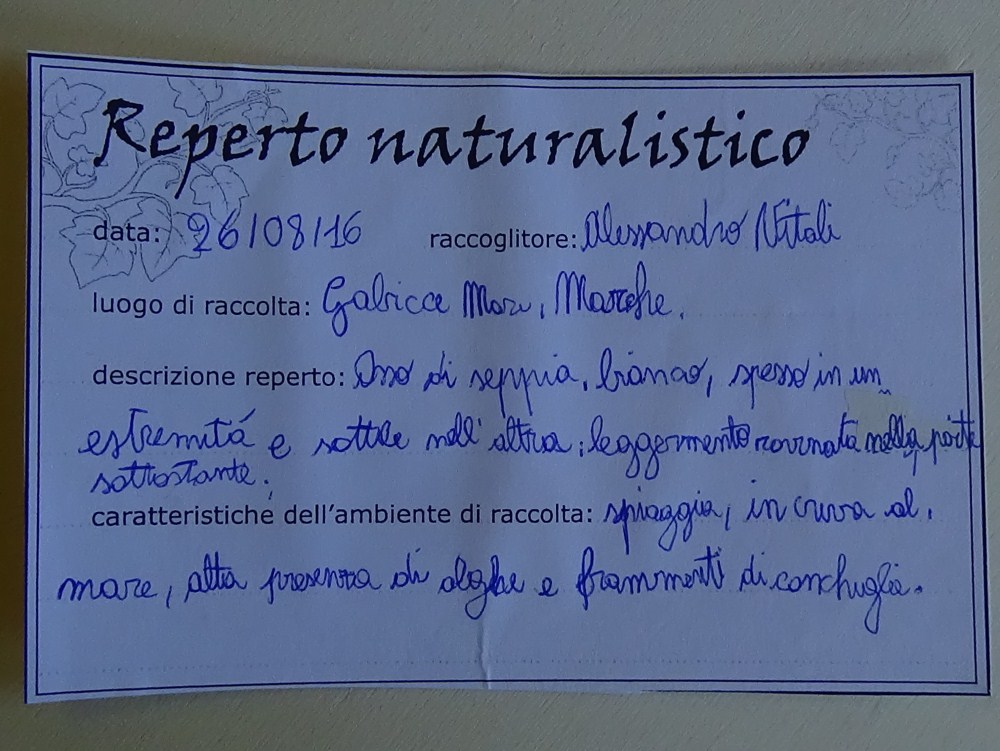 Reperto naturalistico
data: 26/08/16 raccoglitore: Alessandro Vitali
luogo di raccolta: Gabicce Mare, Marche.
descrizione reperto: Osso di seppia, bianco, spesso in un
estremitá e sottile nell'altra; leggermente rovinata nella parte
sottostante.
caratteristiche dell'ambiente di raccolta: spiaggia, in riva al
mare, alta presenza di alghe e frammenti di conchiglie.